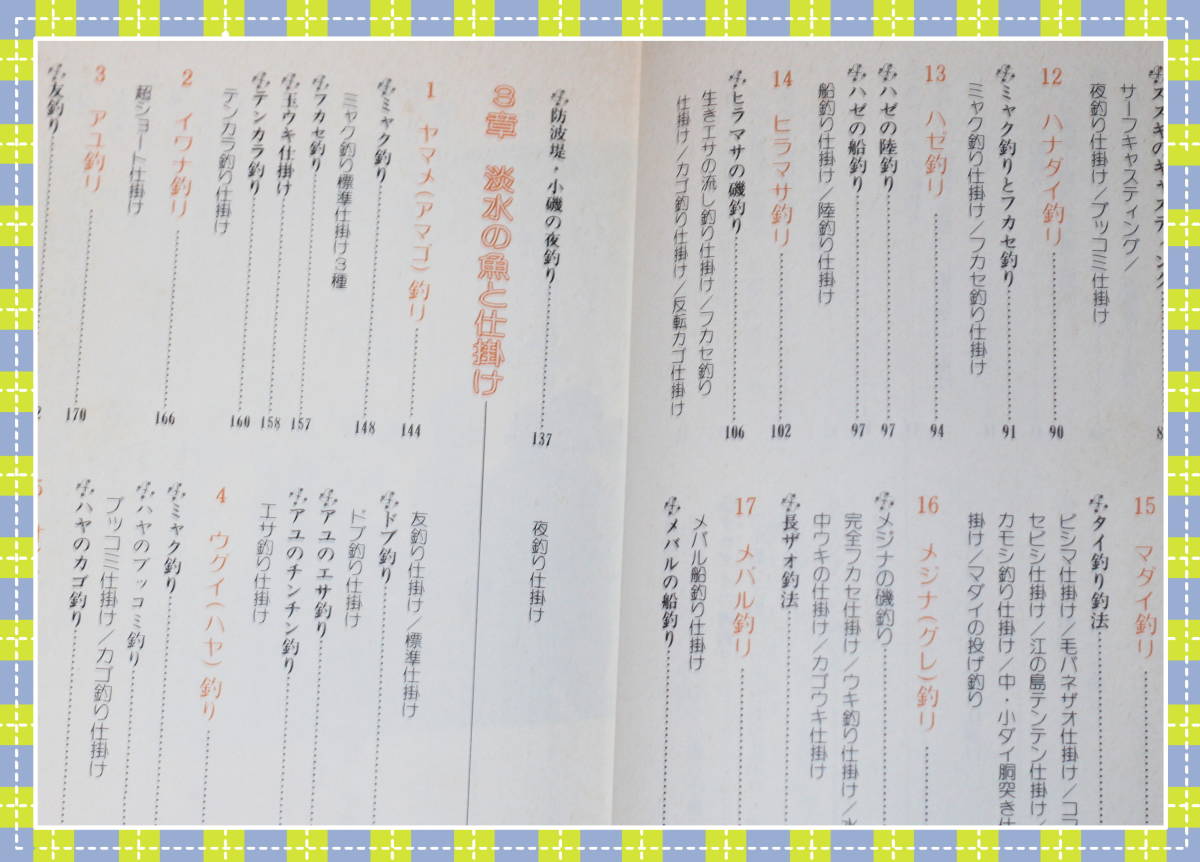 スズキのキャスティング
サーフキャスティング／
夜釣り仕掛け／ブッコミ仕掛け
12 ハナダイ釣り 90
ミャク釣りとフカセ釣り 91
ミャク釣り仕掛け／フカセ釣り仕掛け
13 ハゼ釣り 94
ハゼの陸釣り 97
ハゼの船釣り 97
船釣り仕掛け／陸釣り仕掛け
14 ヒラマサ釣り 102
ヒラマサの磯釣り 106
生きエサの流し釣り仕掛け／フカセ釣り
仕掛け／カゴ釣り仕掛け／反転カゴ仕掛け
15 マダイ釣り
タイ釣り釣法
ビシマ仕掛け／毛バネザオ仕掛け／コマ
セビシ仕掛け／江の島テンテン仕掛け／
カモシ釣り仕掛け／中・小ダイ胴突き仕
掛け／マダイの投げ釣り
16 メジナ（グレ）釣り
メジナの磯釣り
完全フカセ仕掛け／ウキ釣り仕掛け／水
中ウキの仕掛け／カゴウキ仕掛け
長ザオ釣法
17 メバル釣り
メバル船釣り仕掛け
メバルの船釣り
防波堤・小磯の夜釣り 137
夜釣り仕掛け
3章 淡水の魚と仕掛け
1 ヤマメ（アマゴ）釣り 144
ミャク釣り 148
ミャク釣り標準仕掛け3種
フカセ釣り 157
玉ウキ仕掛け 158
テンカラ釣り 160
テンカラ釣り仕掛け
2 イワナ釣り 166
超ショート仕掛け
3 アユ釣り 170
友釣り
友釣り仕掛け／標準仕掛け
ドブ釣り
ドブ釣り仕掛け
アユのエサ釣り
アユのチンチン釣り
エサ釣り仕掛け
4 ウグイ（ハヤ）釣り
ミャク釣り
ハヤのブッコミ釣り
ブッコミ仕掛け／カゴ釣り仕掛け
ハヤのカゴ釣り